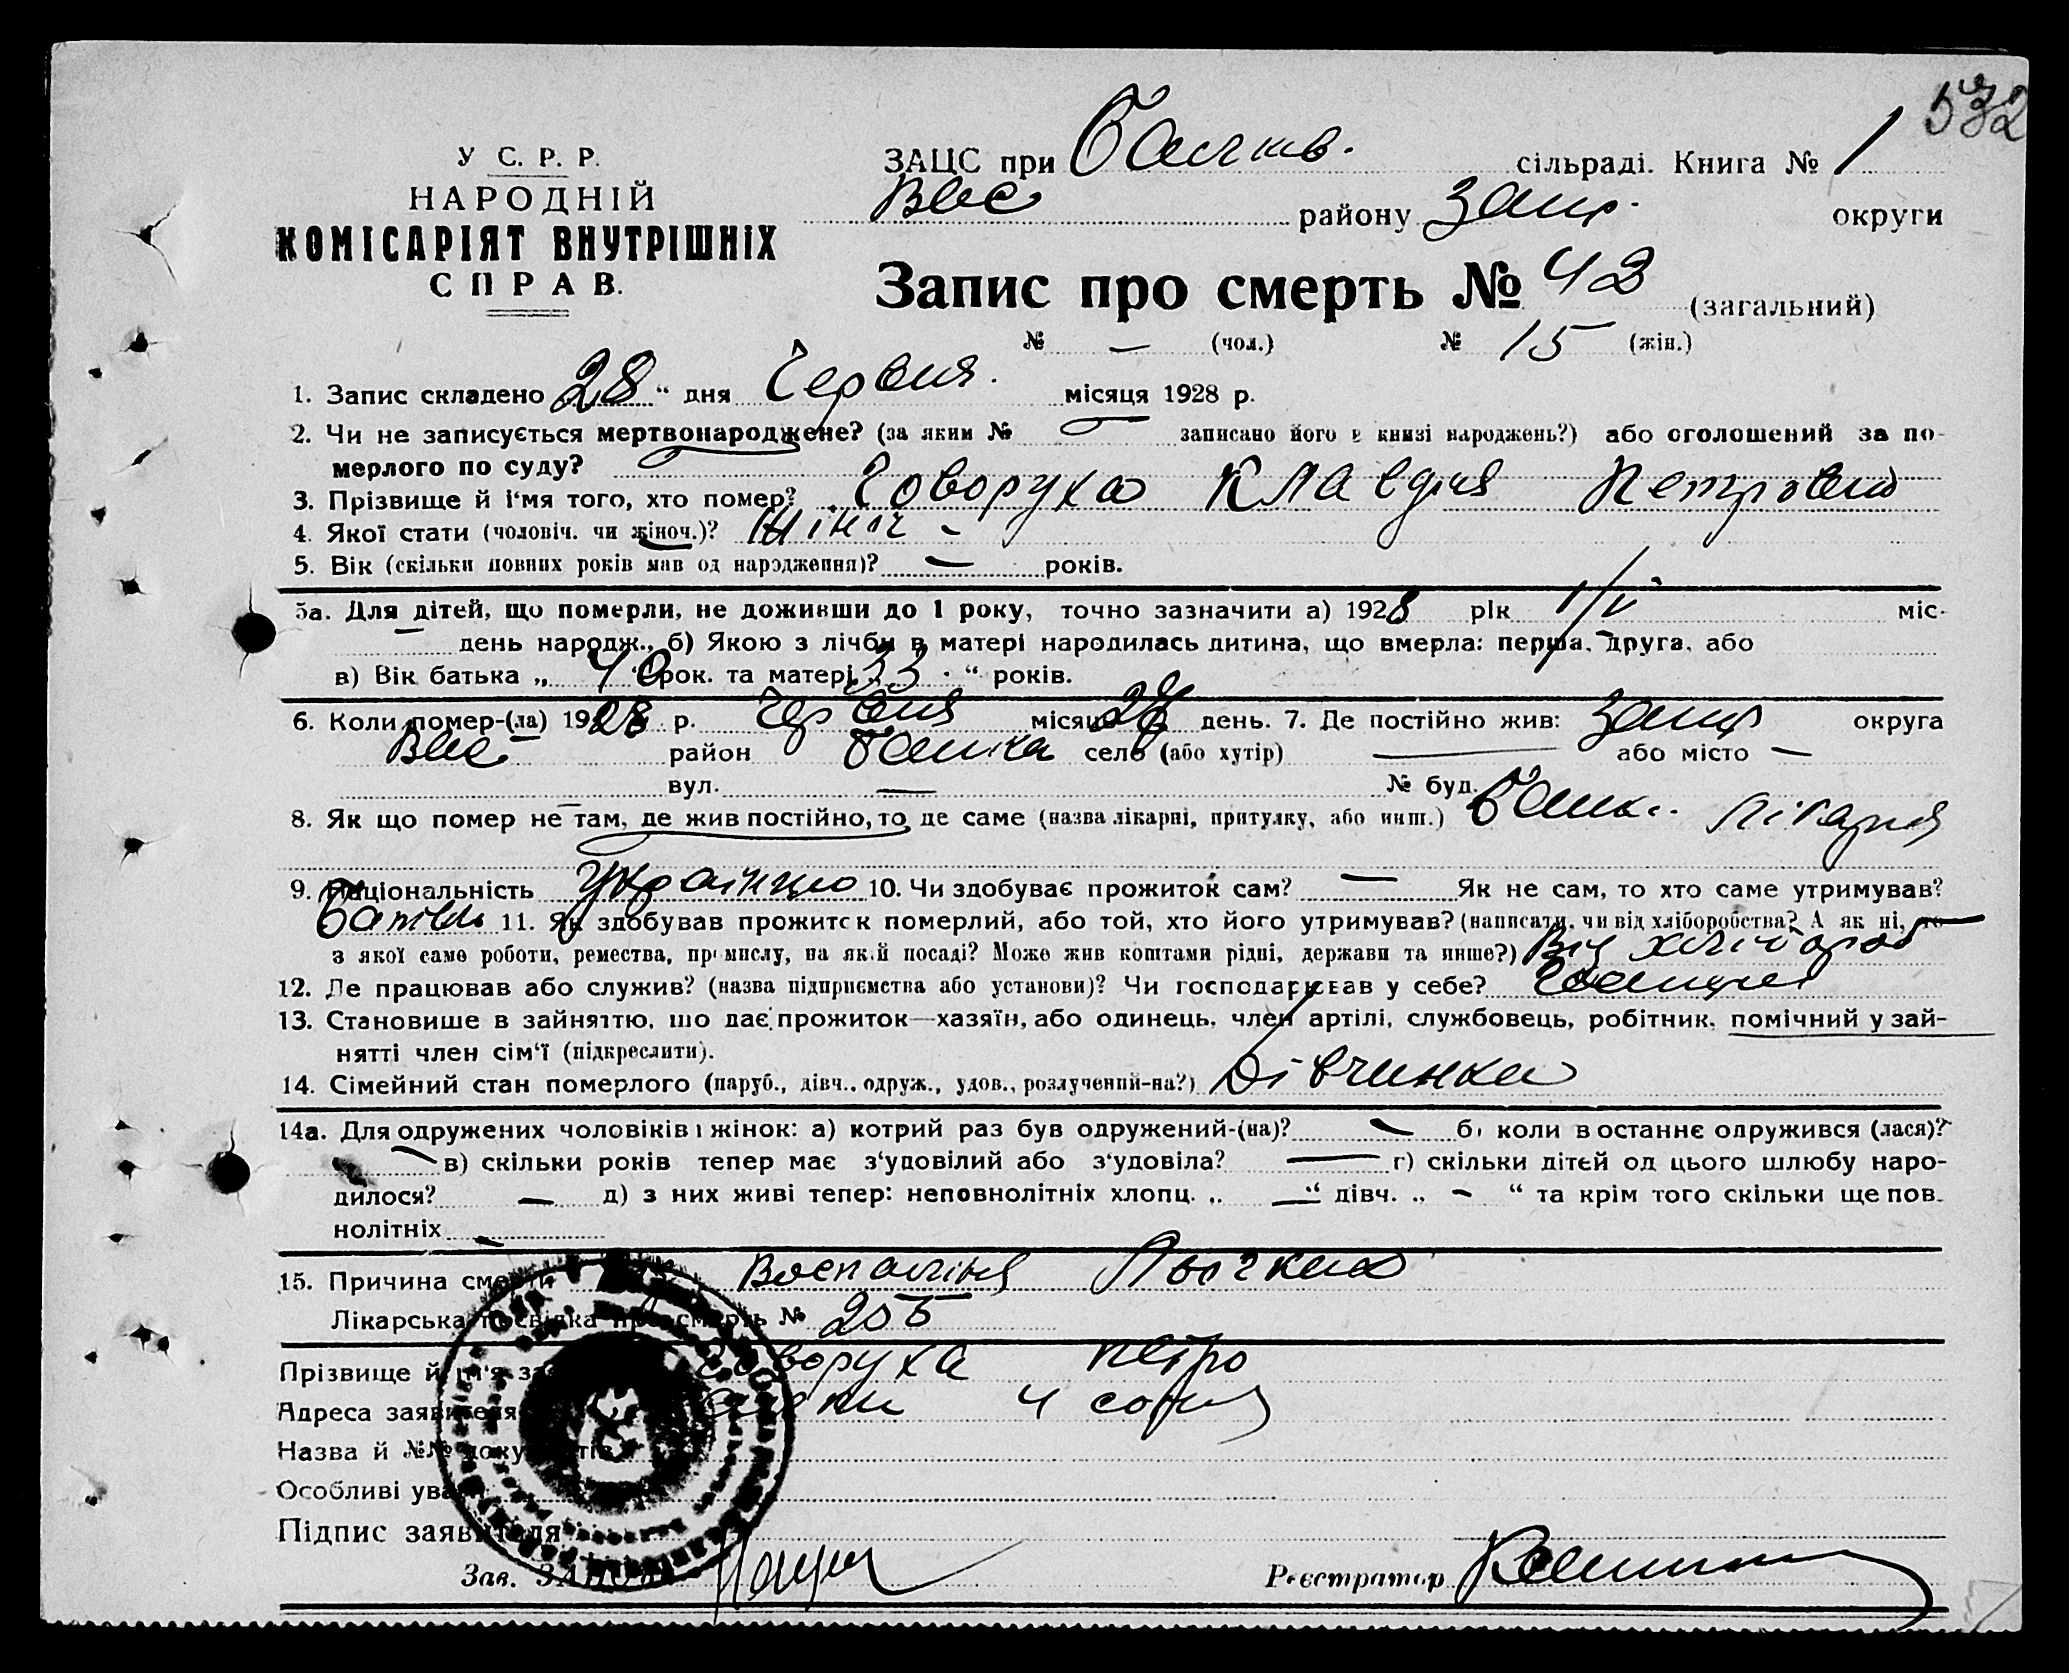 532
У С. Р. Р.
НАРОДНІЙ
КОМІСАРІЯТ ВНУТРІШНІХ
СПРАВ.
ЗАЦС при сільраді. Книга № 1
Вас району Запор. округи
Запис про смерть № 43 (загальний)
№ — (чол.) № 15 (жін.)
1. Запис складено 28 “ дня Червня. місяця 1928 р.
2. Чи не записується мертвонароджене? (за яким № — записано його в книзі народжень?) або оголошений за по-
мерлого по суду?
3. Прізвище й і‘мя того, хто помер? Говоруха Клавдия Петровна
4. Якої стати (чоловіч. чи жіноч.)? Жіноч –
5. Вік (скільки повних років мав од народження)? — років.
5а. Для дітей, що померли, не доживши до 1 року, точно зазначити а) 1928 рік 1/V міс-
— день народж., б) Якою з лічби в матері народилась дитина, що вмерла: перша, друга, або
в) Вік батька „ 40 “ рок. та матері „ 33 “ років.
6. Коли помер-(ла) 1928 р. Червня місяця день. 7. Де постійно жив: Запор округа
Вас район село (або хутір) — або місто —
вул. — № буд.
8. Як що помер не там, де жив постійно, то де саме (назва лікарні, притулку, або инш.) лікарня
9. Національність Українцю 10. Чи здобуває прожиток сам? — Як не сам, то хто саме утримував?
Батько 11. Як здобував прожиток померлий, або той, хто його утримував? (написати, чи від хліборобства? А як ні, то
з якої саме роботи, ремества, промислу, на якій посаді? Може жив коштами рідні, держави та инше?) Від хлібороб
12. Де працював або служив? (назва підприємства або установи)? Чи господарював у себе?
13. Становище в зайняттю, що дає прожиток—хазяїн, або одинець, член артілі, службовець, робітник, помічний у зай-
нятті член сім‘ї (підкреслити).
14. Сімейний стан померлого (паруб., дівч., одруж., удов., розлучений-на?) Дівчинка
14а. Для одружених чоловіків і жінок: а) котрий раз був одружений-(на)? — б) коли в останнє одружився (лася)?
— в) скільки років тепер має з‘удовілий або з‘удовіла? — г) скільки дітей од цього шлюбу наро-
дилося? — д) з них живі тепер: неповнолітніх хлопц. „ — “ дівч. „ — “ та крім того скільки ще пов-
нолітніх —
15. Причина смерти Воспалінія
Лікарська посвідка про смерть № 205
Прізвище й ім‘я Говоруха Петро
Адреса заявителя 4 сотня
Назва й №№ документів
Особливі уваги
Підпис заявителя
Зав. ЗАЦСу
Реєстратор